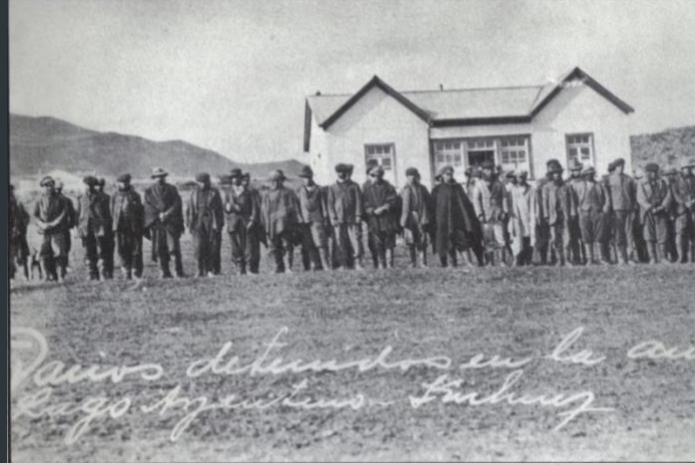 Varios detenidos en la
Lago Argentino -